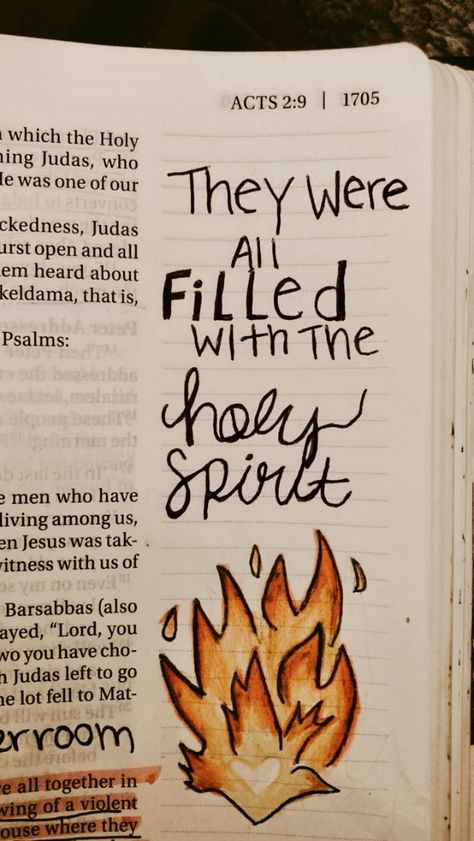 ACTS 2:9 | 1705
which the Holy
Judas, who
He was one of our
Judas
open and all
heard about
that is,
Psalms:
men who have
living among us,
Jesus was tak-
witness with us of
Barsabbas (also
"Lord, you
you have cho-
Judas left to go
lot fell to Mat-
room
all together in
of a violent
where they
They Were
All
Filled
With The
holy
Spirit